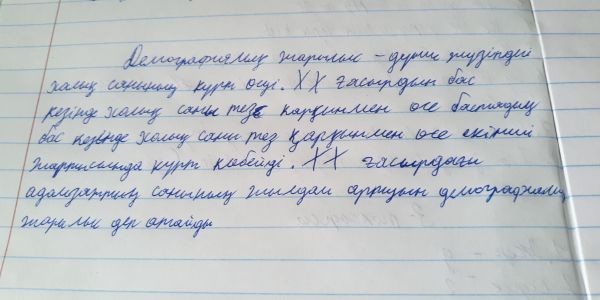 Демографиялық жарылыс – дүние жүзіндегі
халық санының күрт өсуі. XX ғасырдың бас
кезінде халық саны тез қарқынмен өсе бастады
бас кезінде халық саны тез қарқынмен өсе екінші
жартысында күрт көбейді. XX ғасырдағы
адамзаттың санының жылдам артуын демографиялық
жарылыс деп атайды